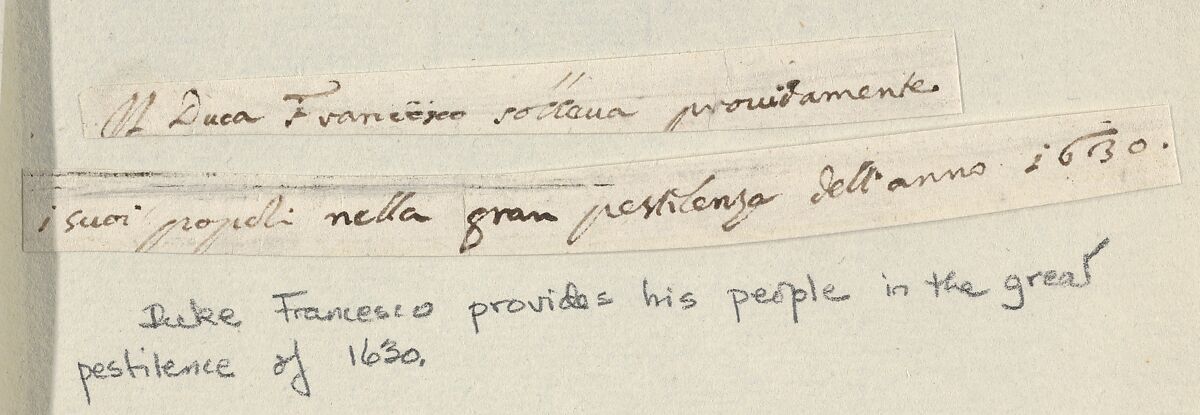 Il Duca Francesco solleua prouidamente.
i suoi popoli nella gran pestilenza dell'anno 1630.
Duke Francesco provides his people in the great
pestilence of 1630.